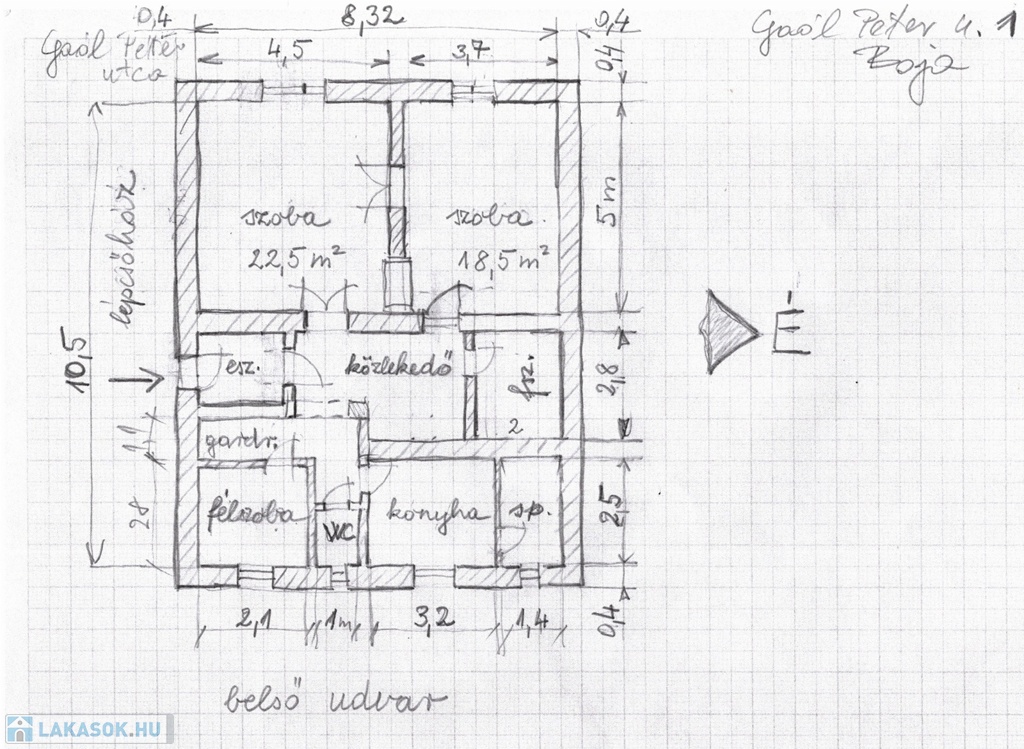 0,4 8,32 0,4
Gaál Péter u. 1
Baja
Gaál Péter
utca
4,5 3,7
0,4
lépcsőház
10,5
szoba
22,5 m²
szoba
18,5 m²
5 m
É
esz.
közlekedő
fsz.
2,8
2
gardr.
félszoba
WC
konyha
sp.
28
2,5
2,1 1m 3,2 1,4
0,4
belső udvar
LAKASOK.HU